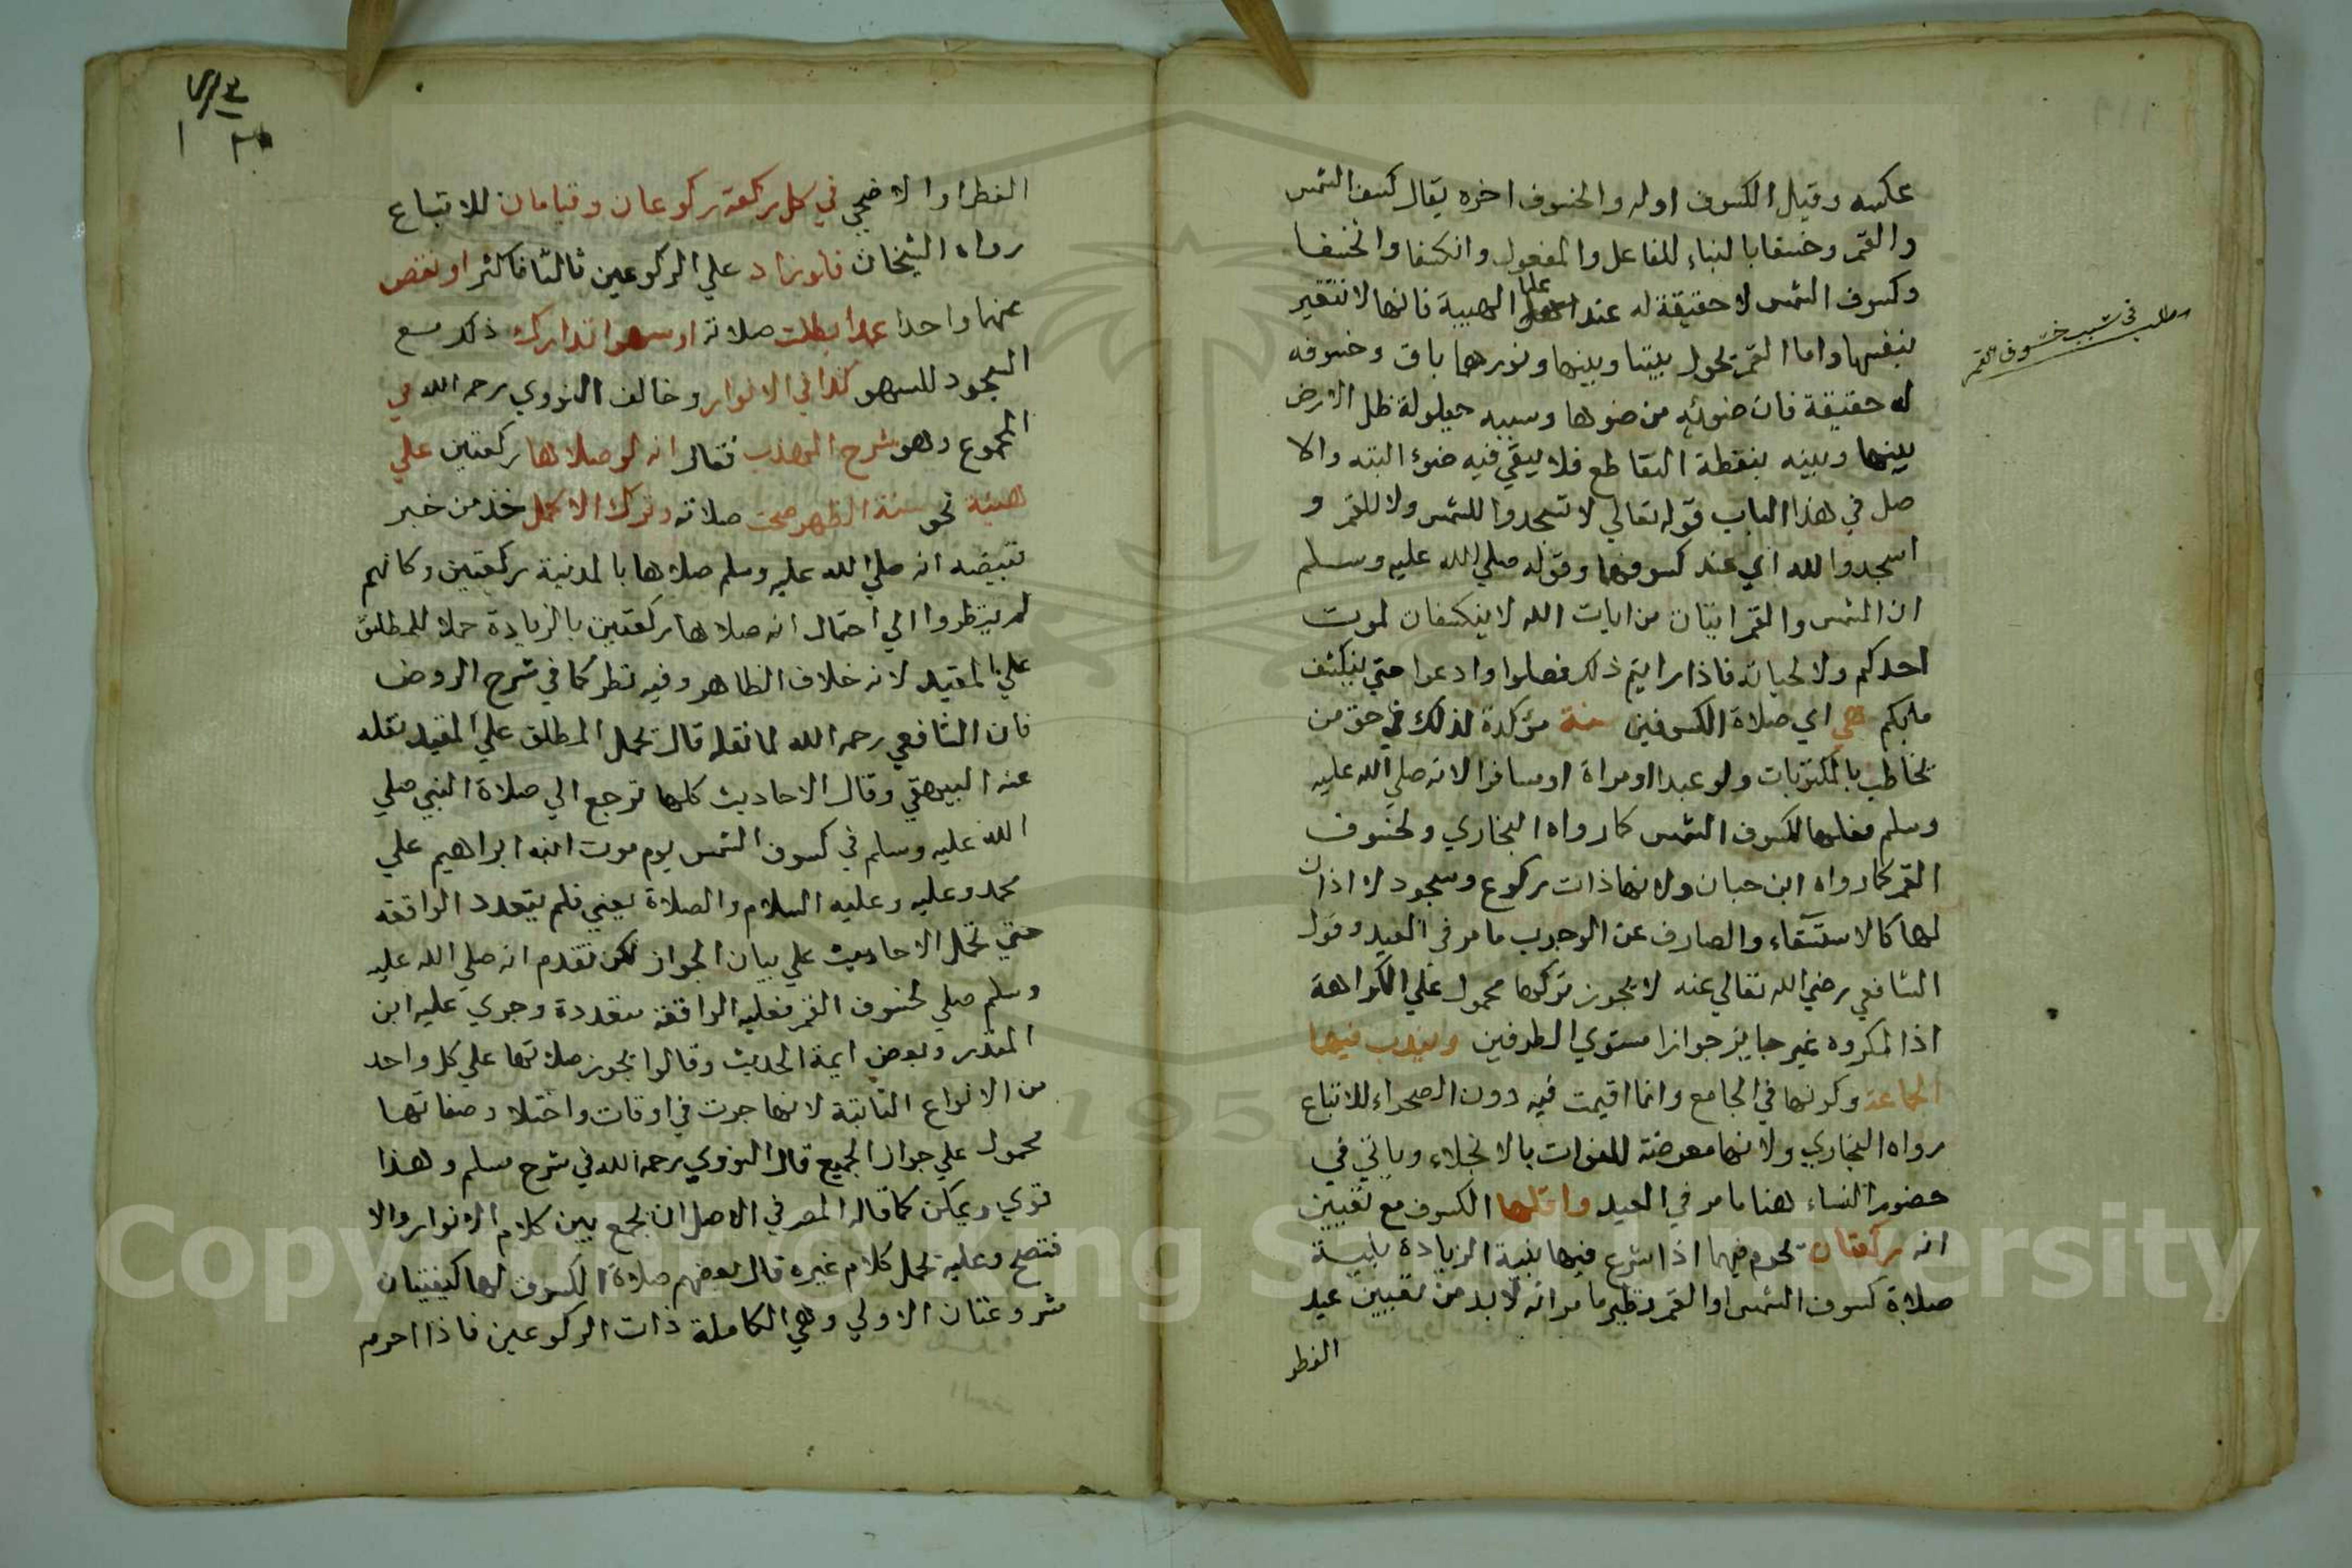 عكسه وقيل الكسوف اوله والخسوف اخره يقال كسف الشمس
والقمر وخسفا بالبناء للفاعل والمفعول وانكسفا وانخسفا
وكسوف الشمس لا حقيقة له عند علما الهيية فانها لا تتغير
بنفسها واما القمر يحول بيننا وبينها ونورها باق وخسوفه
له حقيقة فان ضوئه من ضوها وسببه حيلولة ظل الارض
بينها وبينه بنقطة التقاطع فلا يبقي فيه ضوء البته والا
صل في هذا الباب قوله تعالي لا تسجدوا للشمس ولا للقمر و
اسجدوا لله اي عند كسوفهما وقوله صلي الله عليه وسلم
ان الشمس والقمر ايتان من ايات الله لا ينكسفان لموت
احدكم ولا لحياته فاذا رايتم ذلك فصلوا وادعوا حتي ينكشف
مابكم هي اي صلاة الكسوفين سنة مؤكدة لذلك في حق من
يخاطب بالمكتوبات ولو عبدا او مراة او مسافرا لانه صلي الله عليه
وسلم فعلها لكسوف الشمس كما رواه البخاري ولخسوف
القمر كما رواه ابن حبان ولانها ذات ركوع وسجود لا اذان
لها كالاستسقاء والصارف عن الوجوب ما مر في العيد وقول
الشافعي رضي الله تعالي عنه لا يجوز تركها محمول علي الكراهة
اذ المكروه غير جايز جوازا مستوي الطرفين ويندب فيها
الجماعة وكونها في الجامع وانما اقيمت فيه دون الصحراء للاتباع
رواه البخاري ولانها معرضة للفوات بالانجلاء وياتي في
حضور النساء هنا ما مر في العيد واقلها الكسوف مع تعيين
انه ركعتان تحرم فيهما اذا شرع فيها بنية الزيادة بنية
صلاة كسوف الشمس او القمر نظير ما مر انه لا بد من تعيين عيد
الفطر
مطلب في سبب خسوف القمر
الفطر او الاضحي في كل ركعة ركوعان وقيامان للاتباع
رواه الشيخان فلو زاد علي الركوعين ثالثا فاكثر او نقص
عنهما واحدا عمدا بطلت صلاته او سهوا تدارك ذلك مع
السجود للسهو كذا في الانوار وخالف النووي رحمه الله في
المجموع وهو شرح المهذب فقال انه لو صلاها ركعتين علي
هيئة نحو سنة الظهر صحت صلاته وترك الاكمل خذ من خبر
قبيضه انه صلي الله عليه وسلم صلاها بالمدنية ركعتين وكانهم
لم ينظروا الي احتمال انه صلاها ركعتين بالزيادة حملا للمطلق
علي المقيد لانه خلاف الظاهر وفيه نظر كما في شرح الروض
فان الشافعي رحمه الله لما نقله قال يحمل المطلق علي المقيد نقله
عنه البيهقي وقال الاحاديث كلها ترجع الي صلاة النبي صلي
الله عليه وسلم في كسوف الشمس يوم موت ابنه ابراهيم علي
محمد وعليه وعليه السلام والصلاة يعني فلم يتعدد الواقعه
حتي تحمل الاحاديث علي بيان الجواز لكن تقدم انه صلي الله عليه
وسلم صلي لخسوف القمر فعليه الواقعة متعددة وجري عليه ابن
المنذر وبعض ايمة الحديث وقالوا يجوز صلاتها علي كل واحد
من الانواع الثابتة لانها جرت في اوقات واختلاد صفاتها
محمول علي جواز الجميع قال النووي رحمه الله في شرح مسلم وهذا
قوي ويمكن كما قاله المصر في الاصل ان يجمع بين كلام الانوار والا
فتصح وعليه يحمل كلام غيره قال بعضهم صلاة الكسوف لها كيفيتان
مشروعتان الاولي وهي الكاملة ذات الركوعين فاذا احرم
Copyright © King Saud University
195